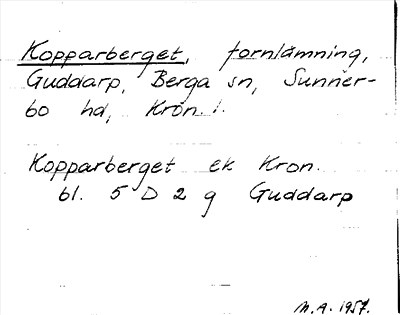 Kopparberget, fornlämning,
Guddarp, Berga sn, Sunner-
bo hd, Kron. l.
Kopparberget ek Kron.
bl. 5 D 2 g Guddarp
M.A. 1957.